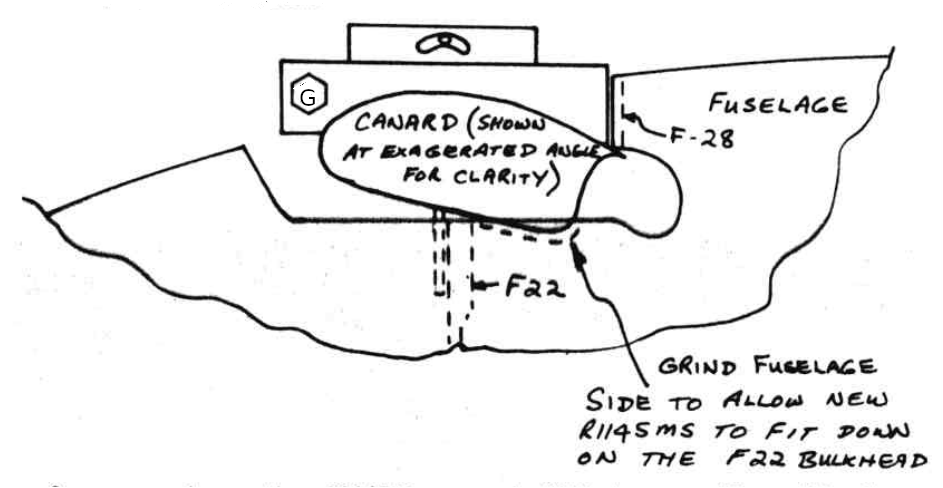 G
CANARD (SHOWN
AT EXAGERATED ANGLE
FOR CLARITY)
FUSELAGE
F-28
F22
GRIND FUSELAGE
SIDE TO ALLOW NEW
R1145MS TO FIT DOWN
ON THE F22 BULKHEAD